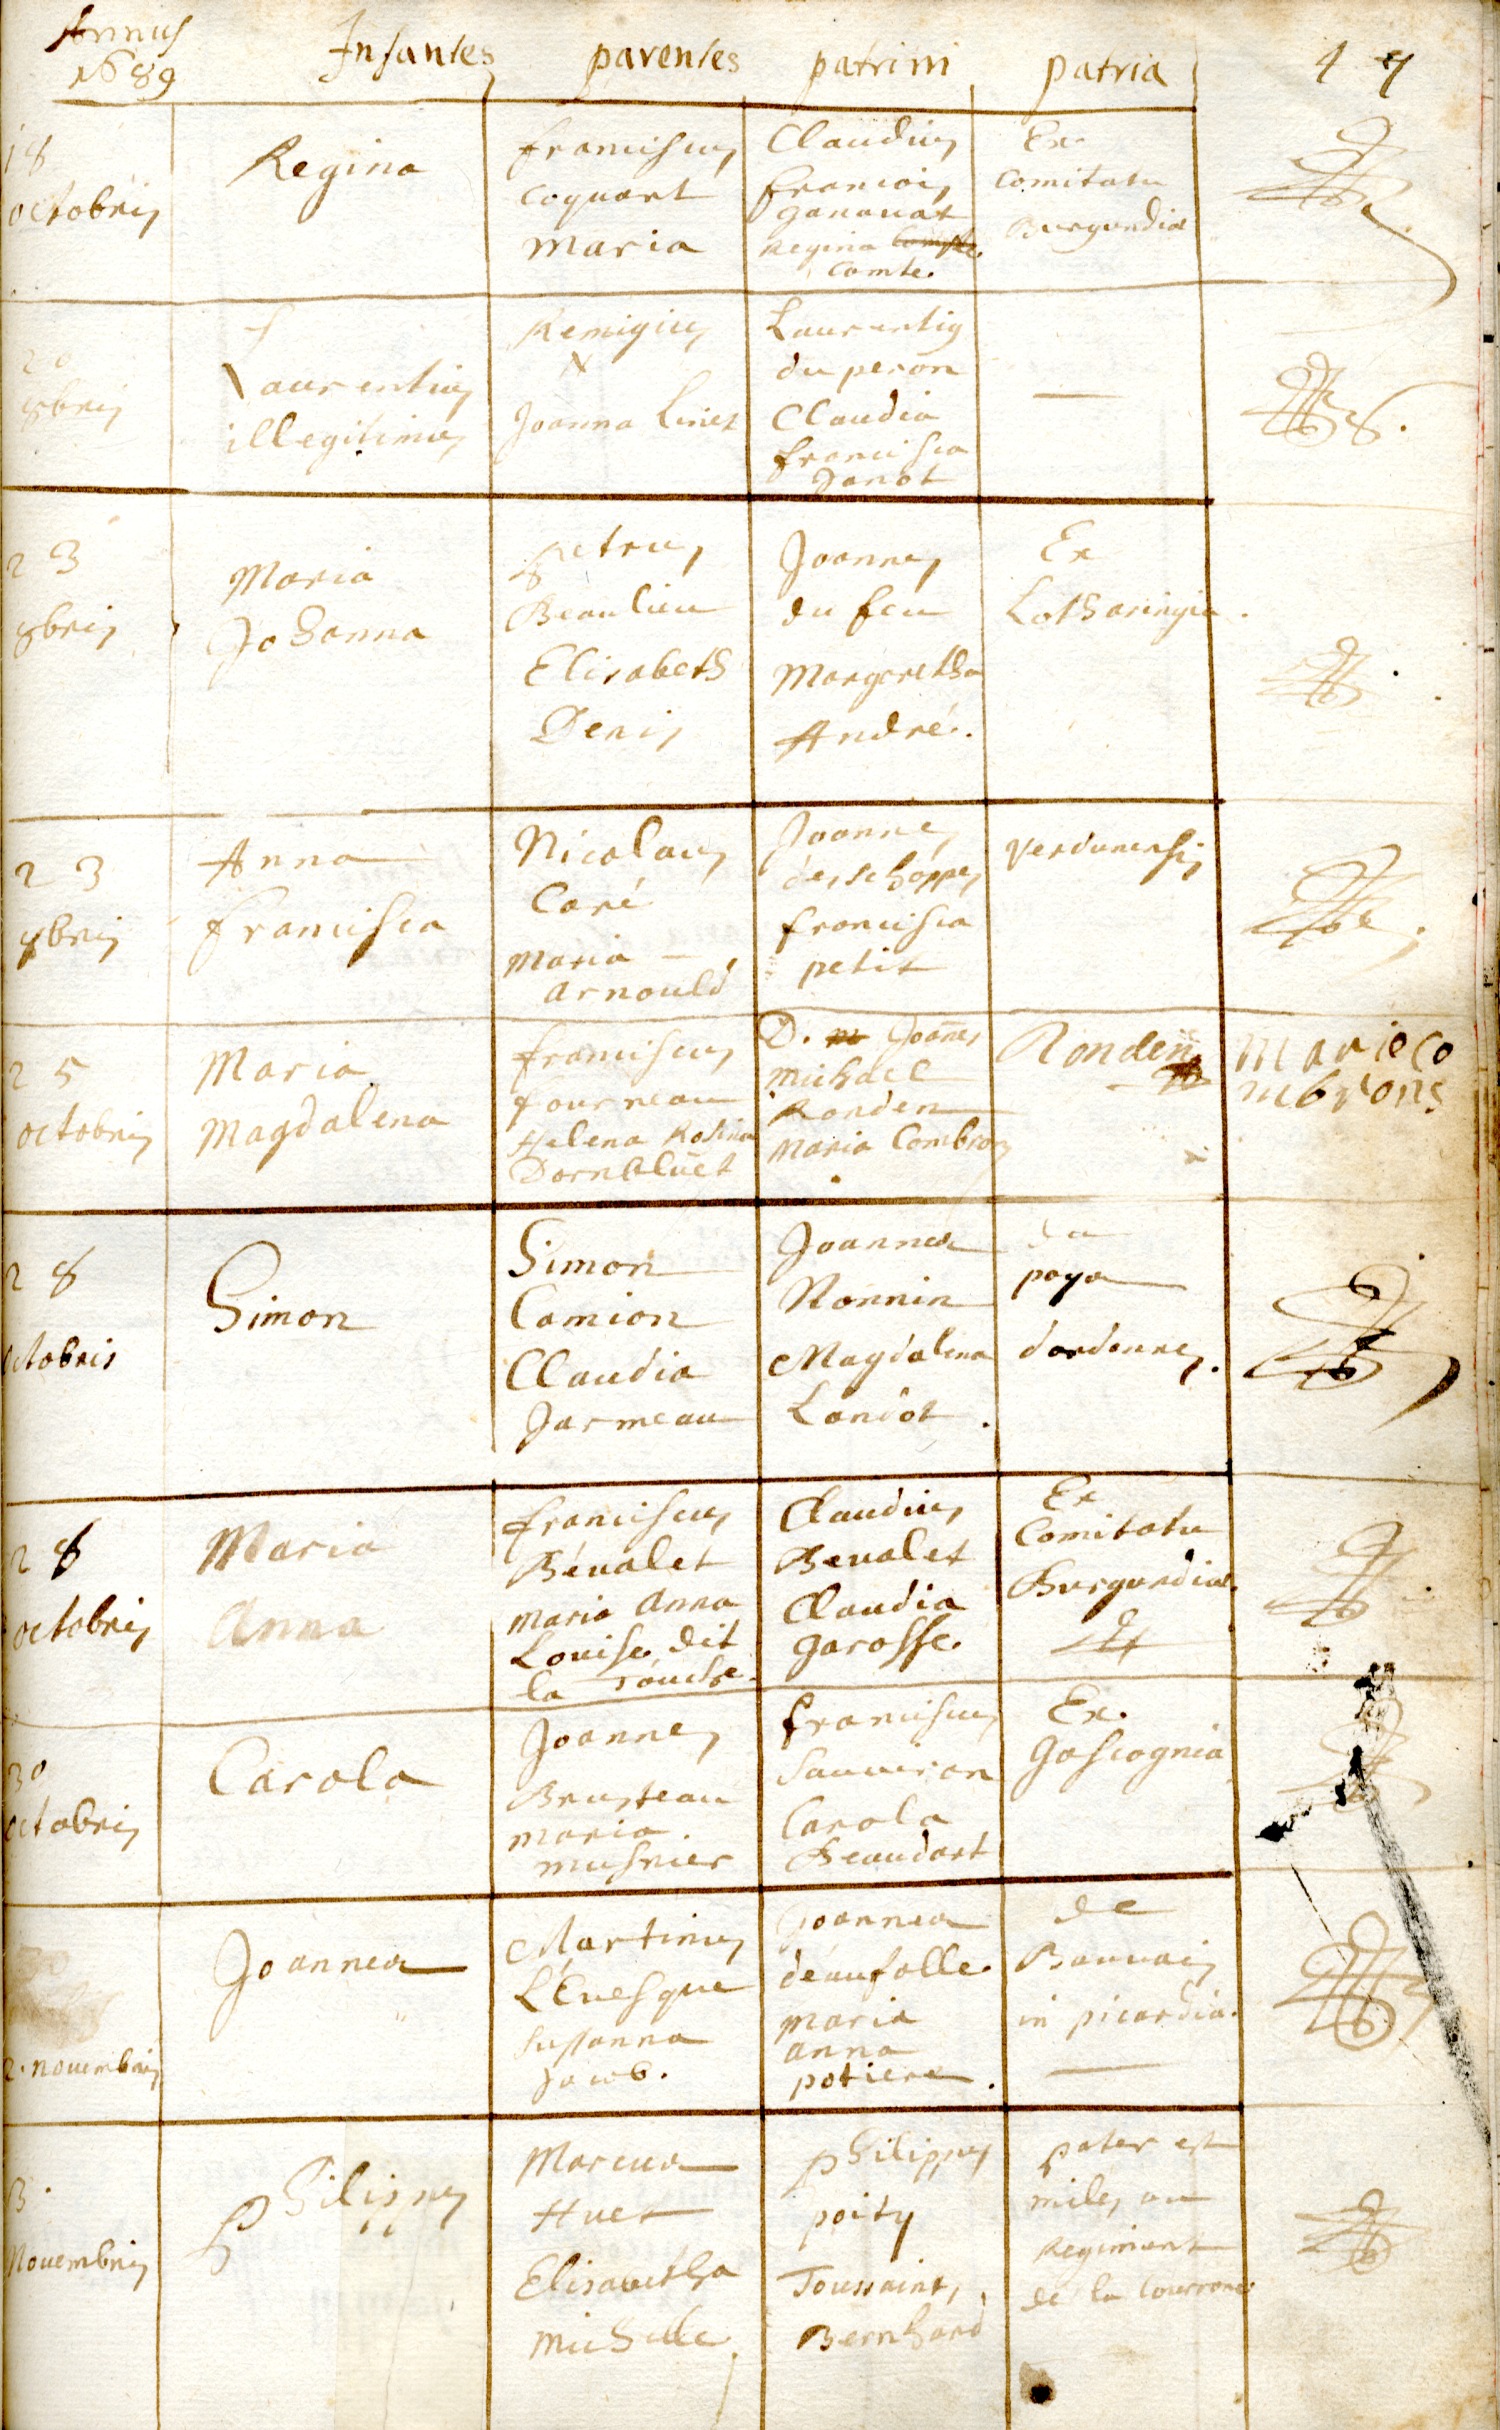 Annus
1689
Infantes
parentes
patrini
patria
47
18
octobris
Regina
franciscus
coquart
maria
Claudius
francois
gananat
Regina Comte
comte.
Ex
comitatu
Burgundiæ
20
8bris
Laurentius
illegitimus
Remigius
N
Joanna Linet
Laurentius
du peron
Claudia
francisca
Janot
23
8bris
Maria
Johanna
petrus
Beaulieu
Elisabeth
Denis
Joannes
du feu
Margaretha
André.
Ex
Lotharingia.
23
8bris
Anna
francisca
Nicolaus
Caré
maria
arnould
Joannes
deschoppes
francisca
petit
verdunensis
25
octobris
Maria
Magdalena
franciscus
fourneau
Helena Rosina
Dornbluet
D. Joānes
michael
Ronden
Maria Combrons
Ronden
marie co
mbrons
28
octobris
Simon
Simon
Camion
Claudia
Jarmeau
Joannes
Nonnin
Magdalena
Landot.
du
paya
dardennes.
28
octobris
Maria
Anna
franciscus
Bévalet
maria anna
Louise dit
la Touche.
Claudius
Bevalet
Claudia
garosse.
Ex
Comitatu
Burgundiæ.
30
octobris
Carola
Joannes
Brusteau
maria
musnier
franciscus
Sauviron
Carola
Beaudart
Ex.
gascognia
2. novembris
Joannes
Martinus
L'Evesque
sussanna
Jacob.
Joannes
deaufolle
maria
anna
potiere.
de
Bauvais
in picardia.
3.
Novembris
philippus
Marcus
Huet
Elisabetha
michelle
philippus
poity
Toussaint,
Bernhard
pater est
miles au
Regiment
de la Couronne